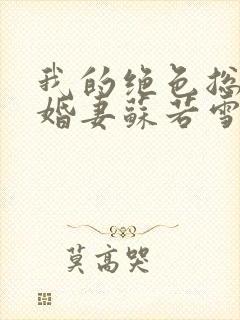 我的绝色总
婚妻苏若雪
莫高哭